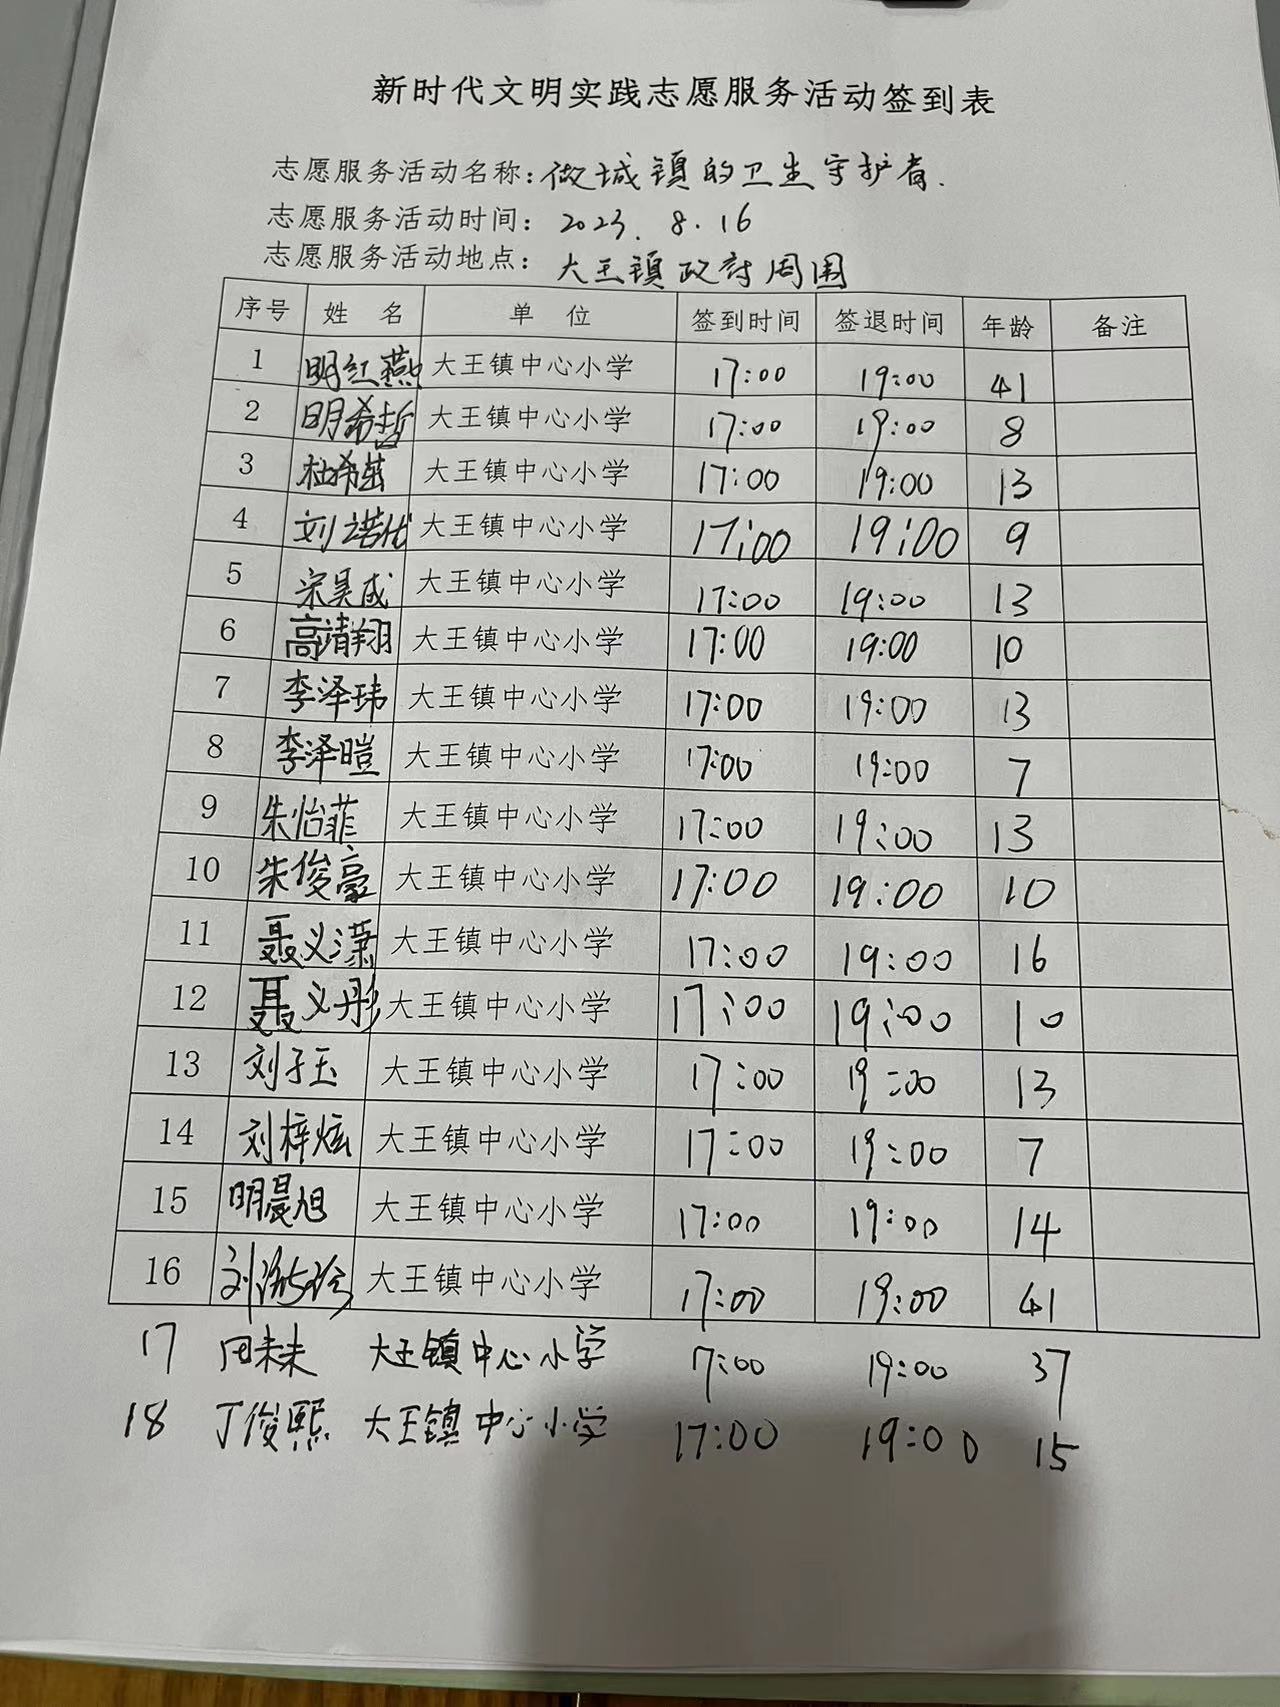 新时代文明实践志愿服务活动签到表
志愿服务活动名称：做城镇的卫生守护者.
志愿服务活动时间：2023.8.16
志愿服务活动地点：大王镇政府周围
序号 姓名 单位 签到时间 签退时间 年龄 备注
1 明红燕 大王镇中心小学 17:00 19:00 41
2 明希哲 大王镇中心小学 17:00 19:00 8
3 杜希茁 大王镇中心小学 17:00 19:00 13
4 刘诺优 大王镇中心小学 17:00 19:00 9
5 宋昊成 大王镇中心小学 17:00 19:00 13
6 高靖翔 大王镇中心小学 17:00 19:00 10
7 李泽玮 大王镇中心小学 17:00 19:00 13
8 李泽暟 大王镇中心小学 17:00 19:00 7
9 朱怡菲 大王镇中心小学 17:00 19:00 13
10 朱俊豪 大王镇中心小学 17:00 19:00 10
11 聂义潇 大王镇中心小学 17:00 19:00 16
12 聂义彤 大王镇中心小学 17:00 19:00 10
13 刘子玉 大王镇中心小学 17:00 19:00 13
14 刘梓炫 大王镇中心小学 17:00 19:00 7
15 明晨旭 大王镇中心小学 17:00 19:00 14
16 刘 大王镇中心小学 17:00 19:00 41
17 田未未 大王镇中心小学 7:00 19:00 37
18 丁俊熙 大王镇中心小学 17:00 19:00 15